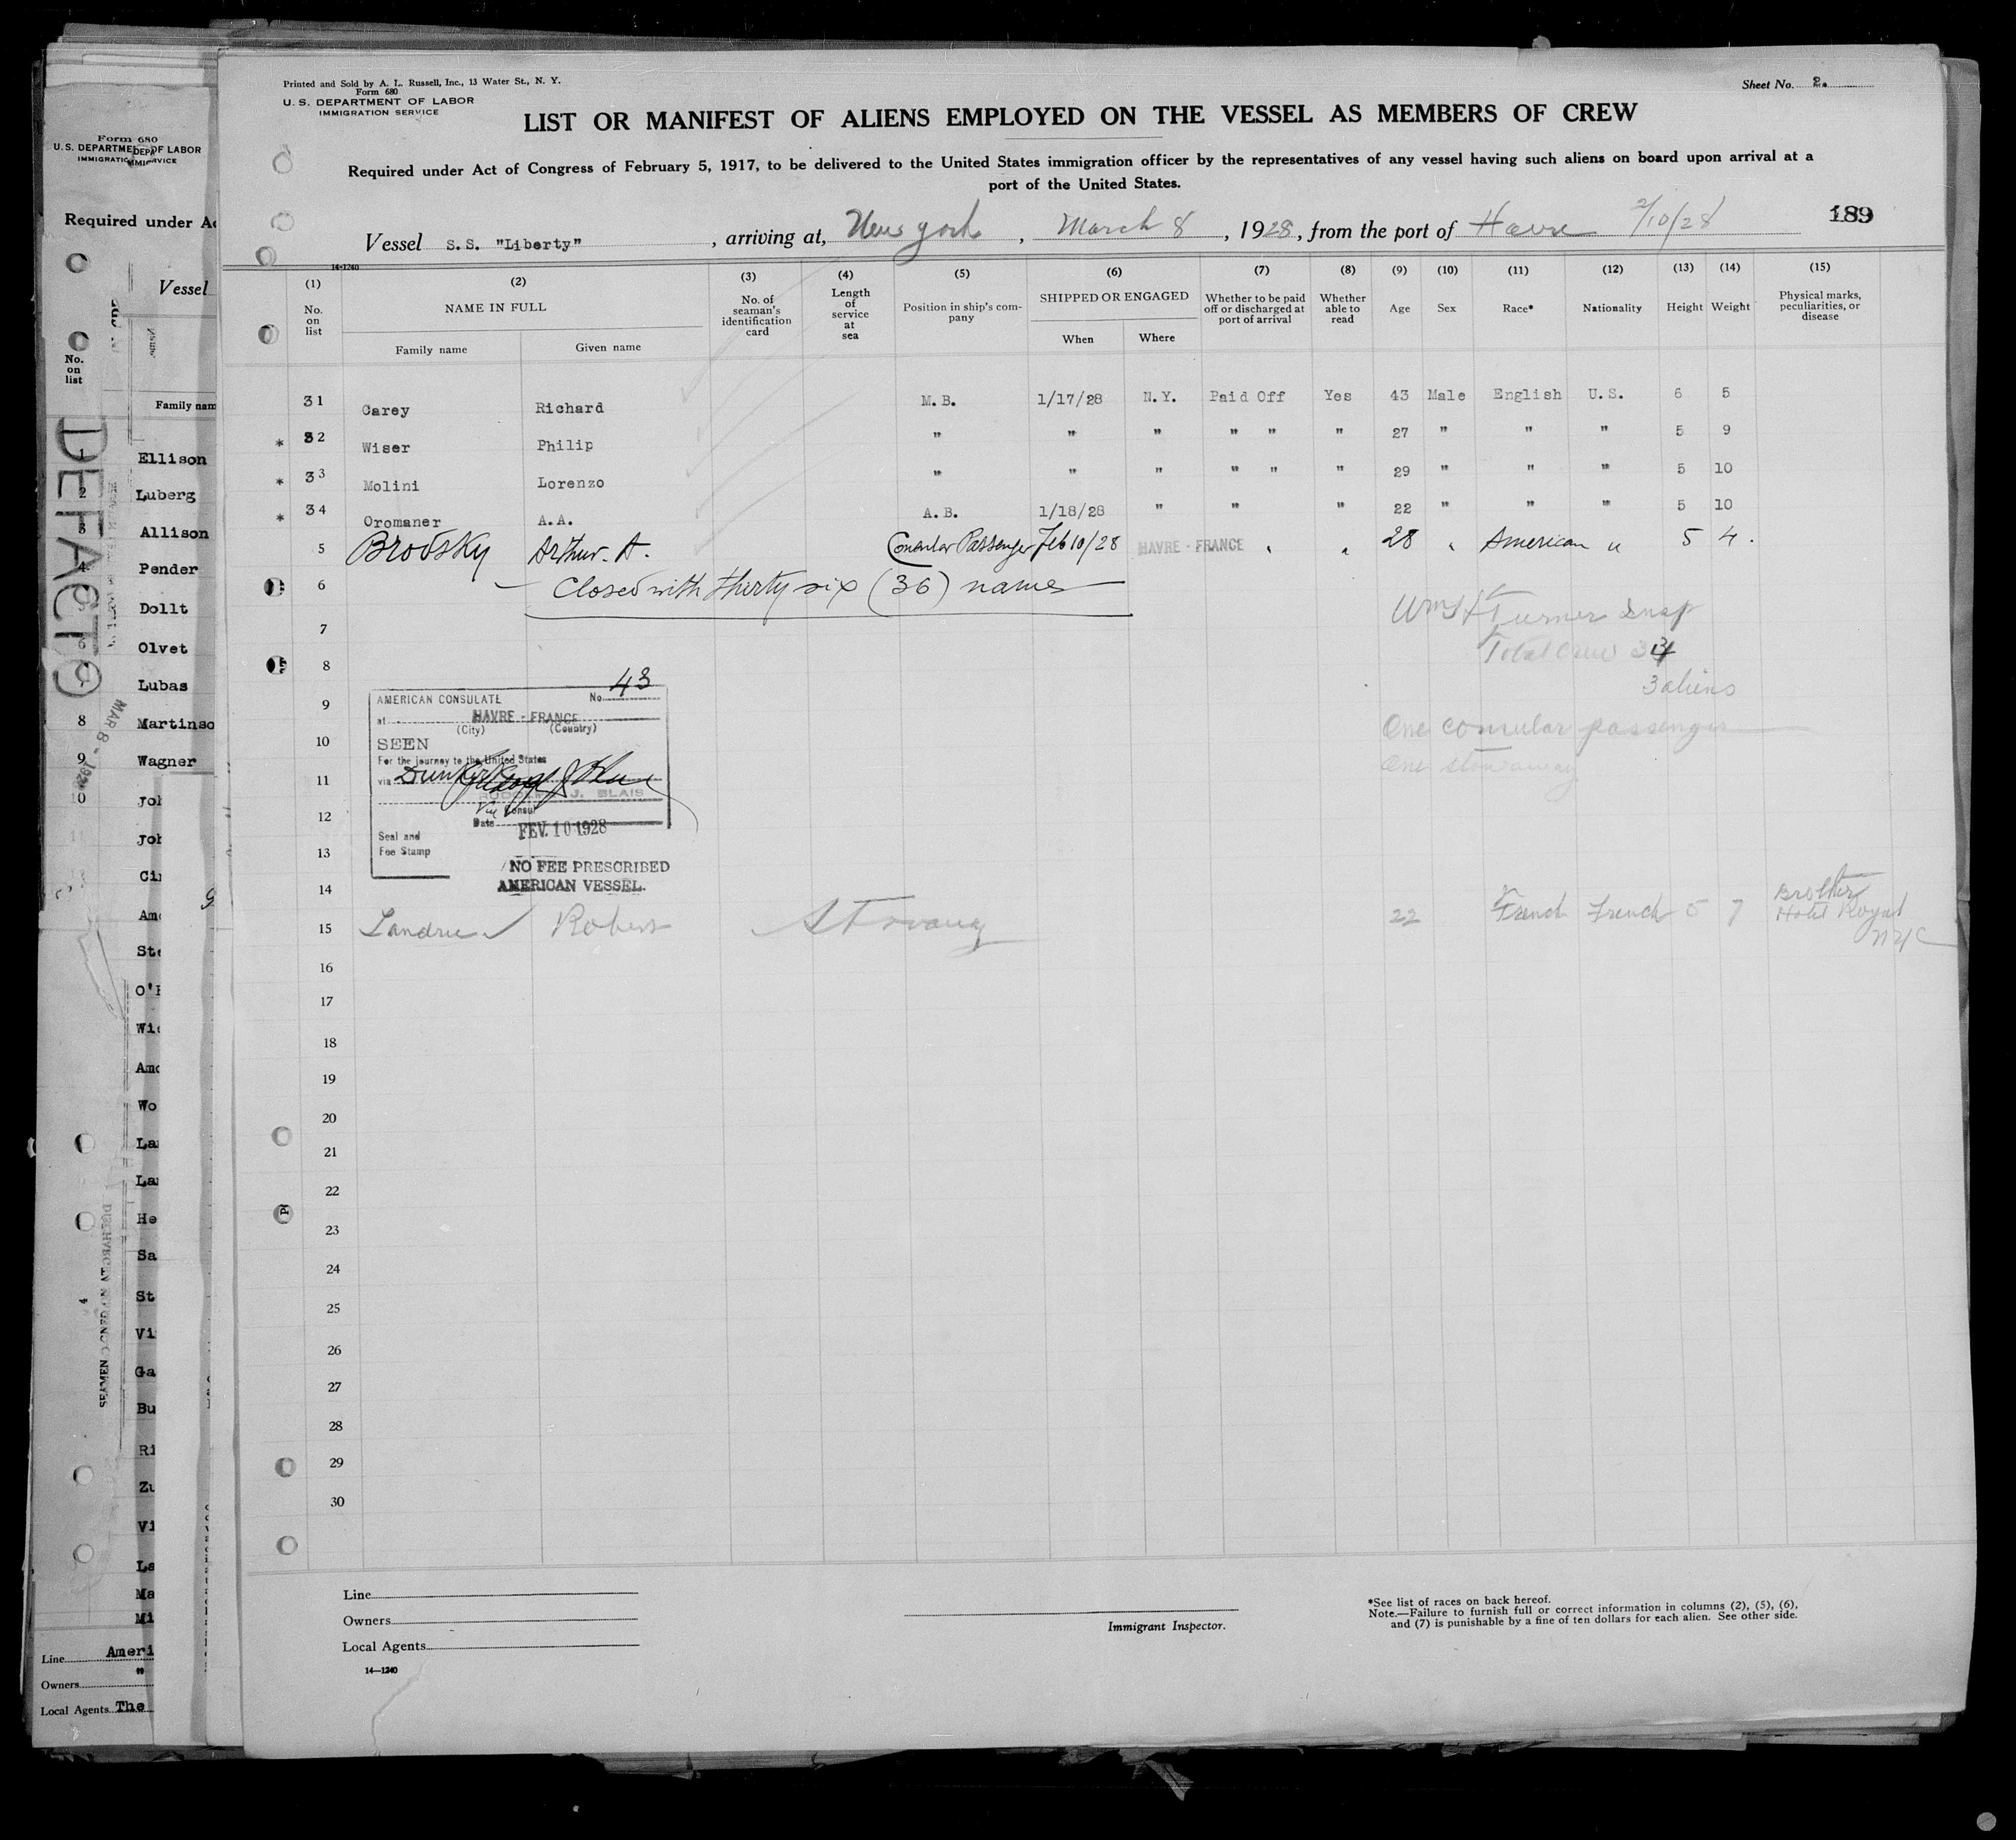 Printed and Sold by A. L. Russell, Inc., 13 Water St., N. Y.
Form 680
U. S. DEPARTMENT OF LABOR
IMMIGRATION SERVICE
Sheet No. 2
LIST OR MANIFEST OF ALIENS EMPLOYED ON THE VESSEL AS MEMBERS OF CREW
Required under Act of Congress of February 5, 1917, to be delivered to the United States immigration officer by the representatives of any vessel having such aliens on board upon arrival at a
port of the United States.
Vessel S.S. "Liberty", arriving at, New York, March 8, 1928, from the port of Havre 2/10/28 189
14-1240
(1) No. on list
(2) NAME IN FULL
Family name Given name
(3) No. of seaman's identification card
(4) Length of service at sea
(5) Position in ship's company
(6) SHIPPED OR ENGAGED
When Where
(7) Whether to be paid off or discharged at port of arrival
(8) Whether able to read
(9) Age
(10) Sex
(11) Race*
(12) Nationality
(13) Height
(14) Weight
(15) Physical marks, peculiarities, or disease
31 Carey Richard M.B. 1/17/28 N.Y. Paid Off Yes 43 Male English U.S. 6 5
* 32 Wiser Philip " " " " " " 27 " " " 5 9
* 33 Molini Lorenzo " " " " " " 29 " " " 5 10
* 34 Oromaner A.A. A.B. 1/18/28 " " " 22 " " " 5 10
5 Brodsky Arthur. A. Consular Passenger Feb 10/28 HAVRE - FRANCE " " 28 " American " 5 4.
6 Closed with thirty six (36) names
Wm H Turner Insp
7
Total Crew 34
8
3 aliens
9
One consular passenger
10
One stowaway
11
12
13
AMERICAN CONSULATE No. 43
at HAVRE - FRANCE
(City) (Country)
SEEN
For the journey to the United States
via Dunkirk
RUDOLPH J. BLAIS
Vice Consul
Date FEV. 10 1928
Seal and
Fee Stamp
NO FEE PRESCRIBED
AMERICAN VESSEL.
14
15 Landru Robert Stowaway 22 French French 5 7 Brother Hotel Royal NYC
16
17
18
19
20
21
22
23
24
25
26
27
28
29
30
Line
Owners
Local Agents
14—1240
Immigrant Inspector.
*See list of races on back hereof.
Note.—Failure to furnish full or correct information in columns (2), (5), (6),
and (7) is punishable by a fine of ten dollars for each alien. See other side.
Form 680
U.S. DEPARTMENT OF LABOR
Required under Ac
Vessel
No.
on
list
Family nam
1 Ellison
2 Luberg
3 Allison
4 Pender
Dollt
Olvet
Lubas
8 Martinso
9 Wagner
10 Joh
Joh
Ci
Amo
Ste
O'
Wi
Amo
Wo
La
La
He
Sa
St
Vi
Ga
Bu
Ri
Zu
Vi
La
Ma
Mi
DEFACTO
MAR 8 - 1928
Line Ameri
Owners "
Local Agents The